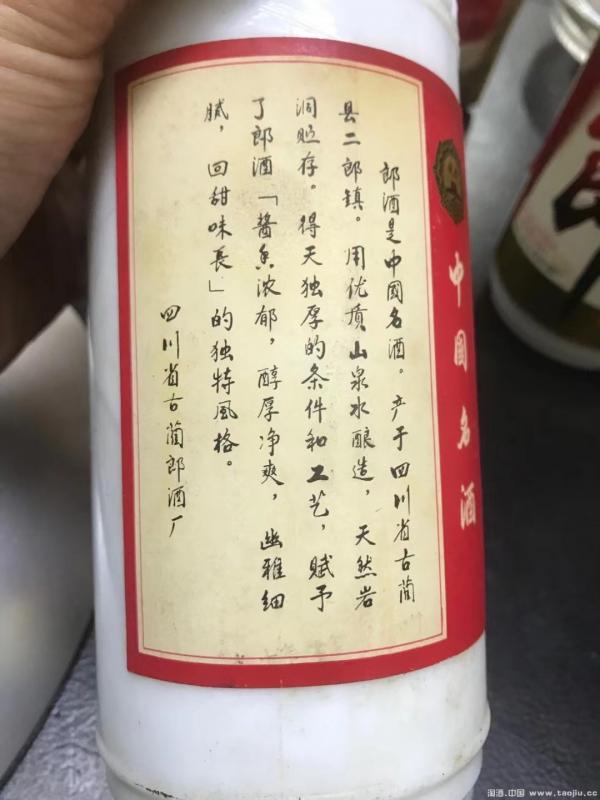 郎酒是中國名酒。产于四川省古蔺
县二郎镇。用优质山泉水酿造，天然岩
洞贮存。得天独厚的条件和工艺，赋予
了郎酒「醬香浓郁，醇厚净爽，幽雅细
腻，回甜味長」的独特風格。
四川省古蔺郎酒厂
中國名酒
淘酒.中国 www.taojiu.cc